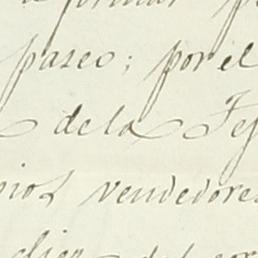 a formar p
paseo; por el
de la Fe
nios vendedores